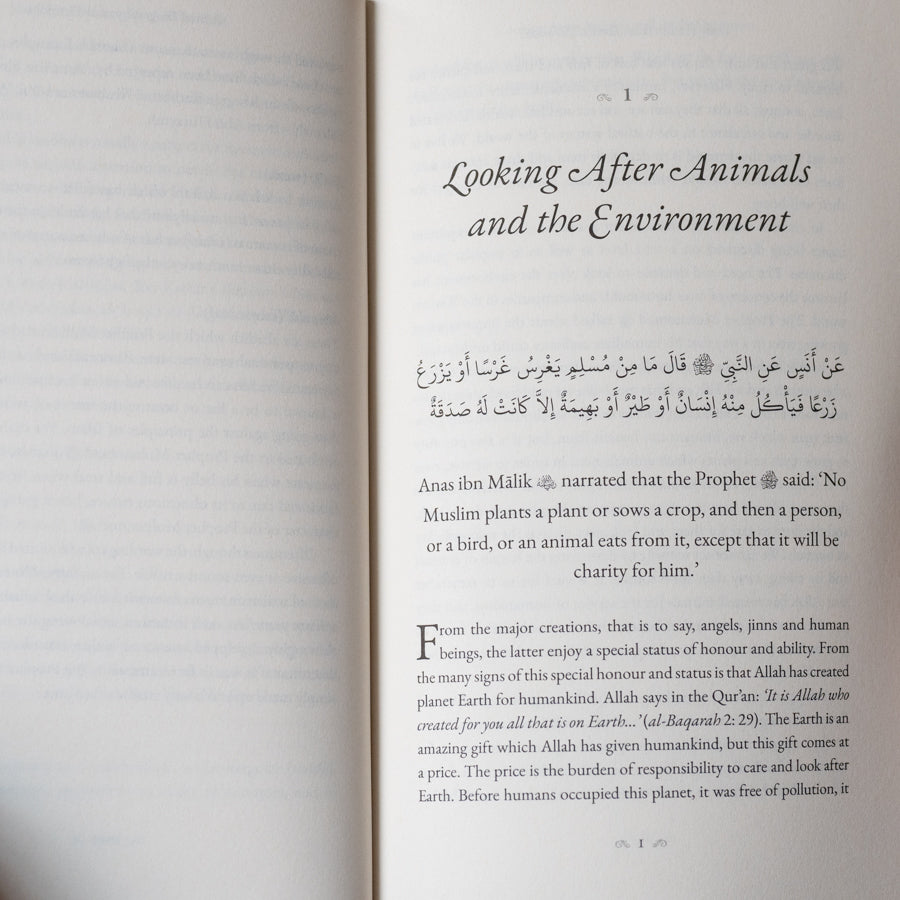 1
Looking After Animals
and the Environment
عَنْ أَنَسٍ عَنِ النَّبِيِّ ﷺ قَالَ مَا مِنْ مُسْلِمٍ يَغْرِسُ غَرْسًا أَوْ يَزْرَعُ
زَرْعًا فَيَأْكُلُ مِنْهُ إِنْسَانٌ أَوْ طَيْرٌ أَوْ بَهِيمَةٌ إِلاَّ كَانَتْ لَهُ صَدَقَةٌ
Anas ibn Mālik narrated that the Prophet ﷺ said: ‘No
Muslim plants a plant or sows a crop, and then a person,
or a bird, or an animal eats from it, except that it will be
charity for him.’
From the major creations, that is to say, angels, jinns and human
beings, the latter enjoy a special status of honour and ability. From
the many signs of this special honour and status is that Allah has created
planet Earth for humankind. Allah says in the Qur’an: ‘It is Allah who
created for you all that is on Earth…’ (al-Baqarah 2: 29). The Earth is an
amazing gift which Allah has given humankind, but this gift comes at
a price. The price is the burden of responsibility to care and look after
Earth. Before humans occupied this planet, it was free of pollution, it
1